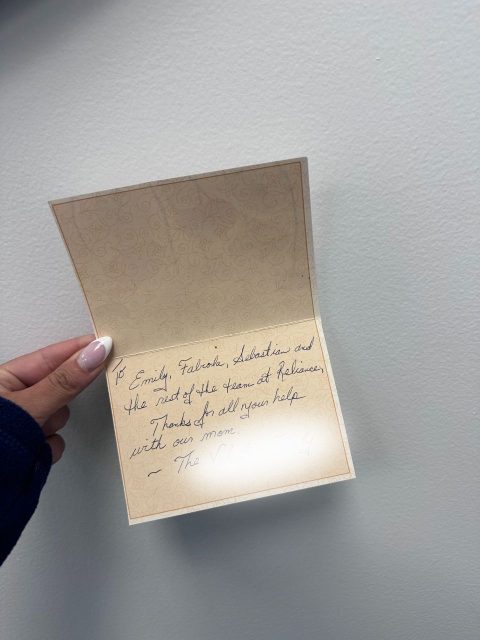 To Emily, Fabiola, Sebastian and
the rest of the team at Reliance,
Thanks for all your help
with our mom
~ The